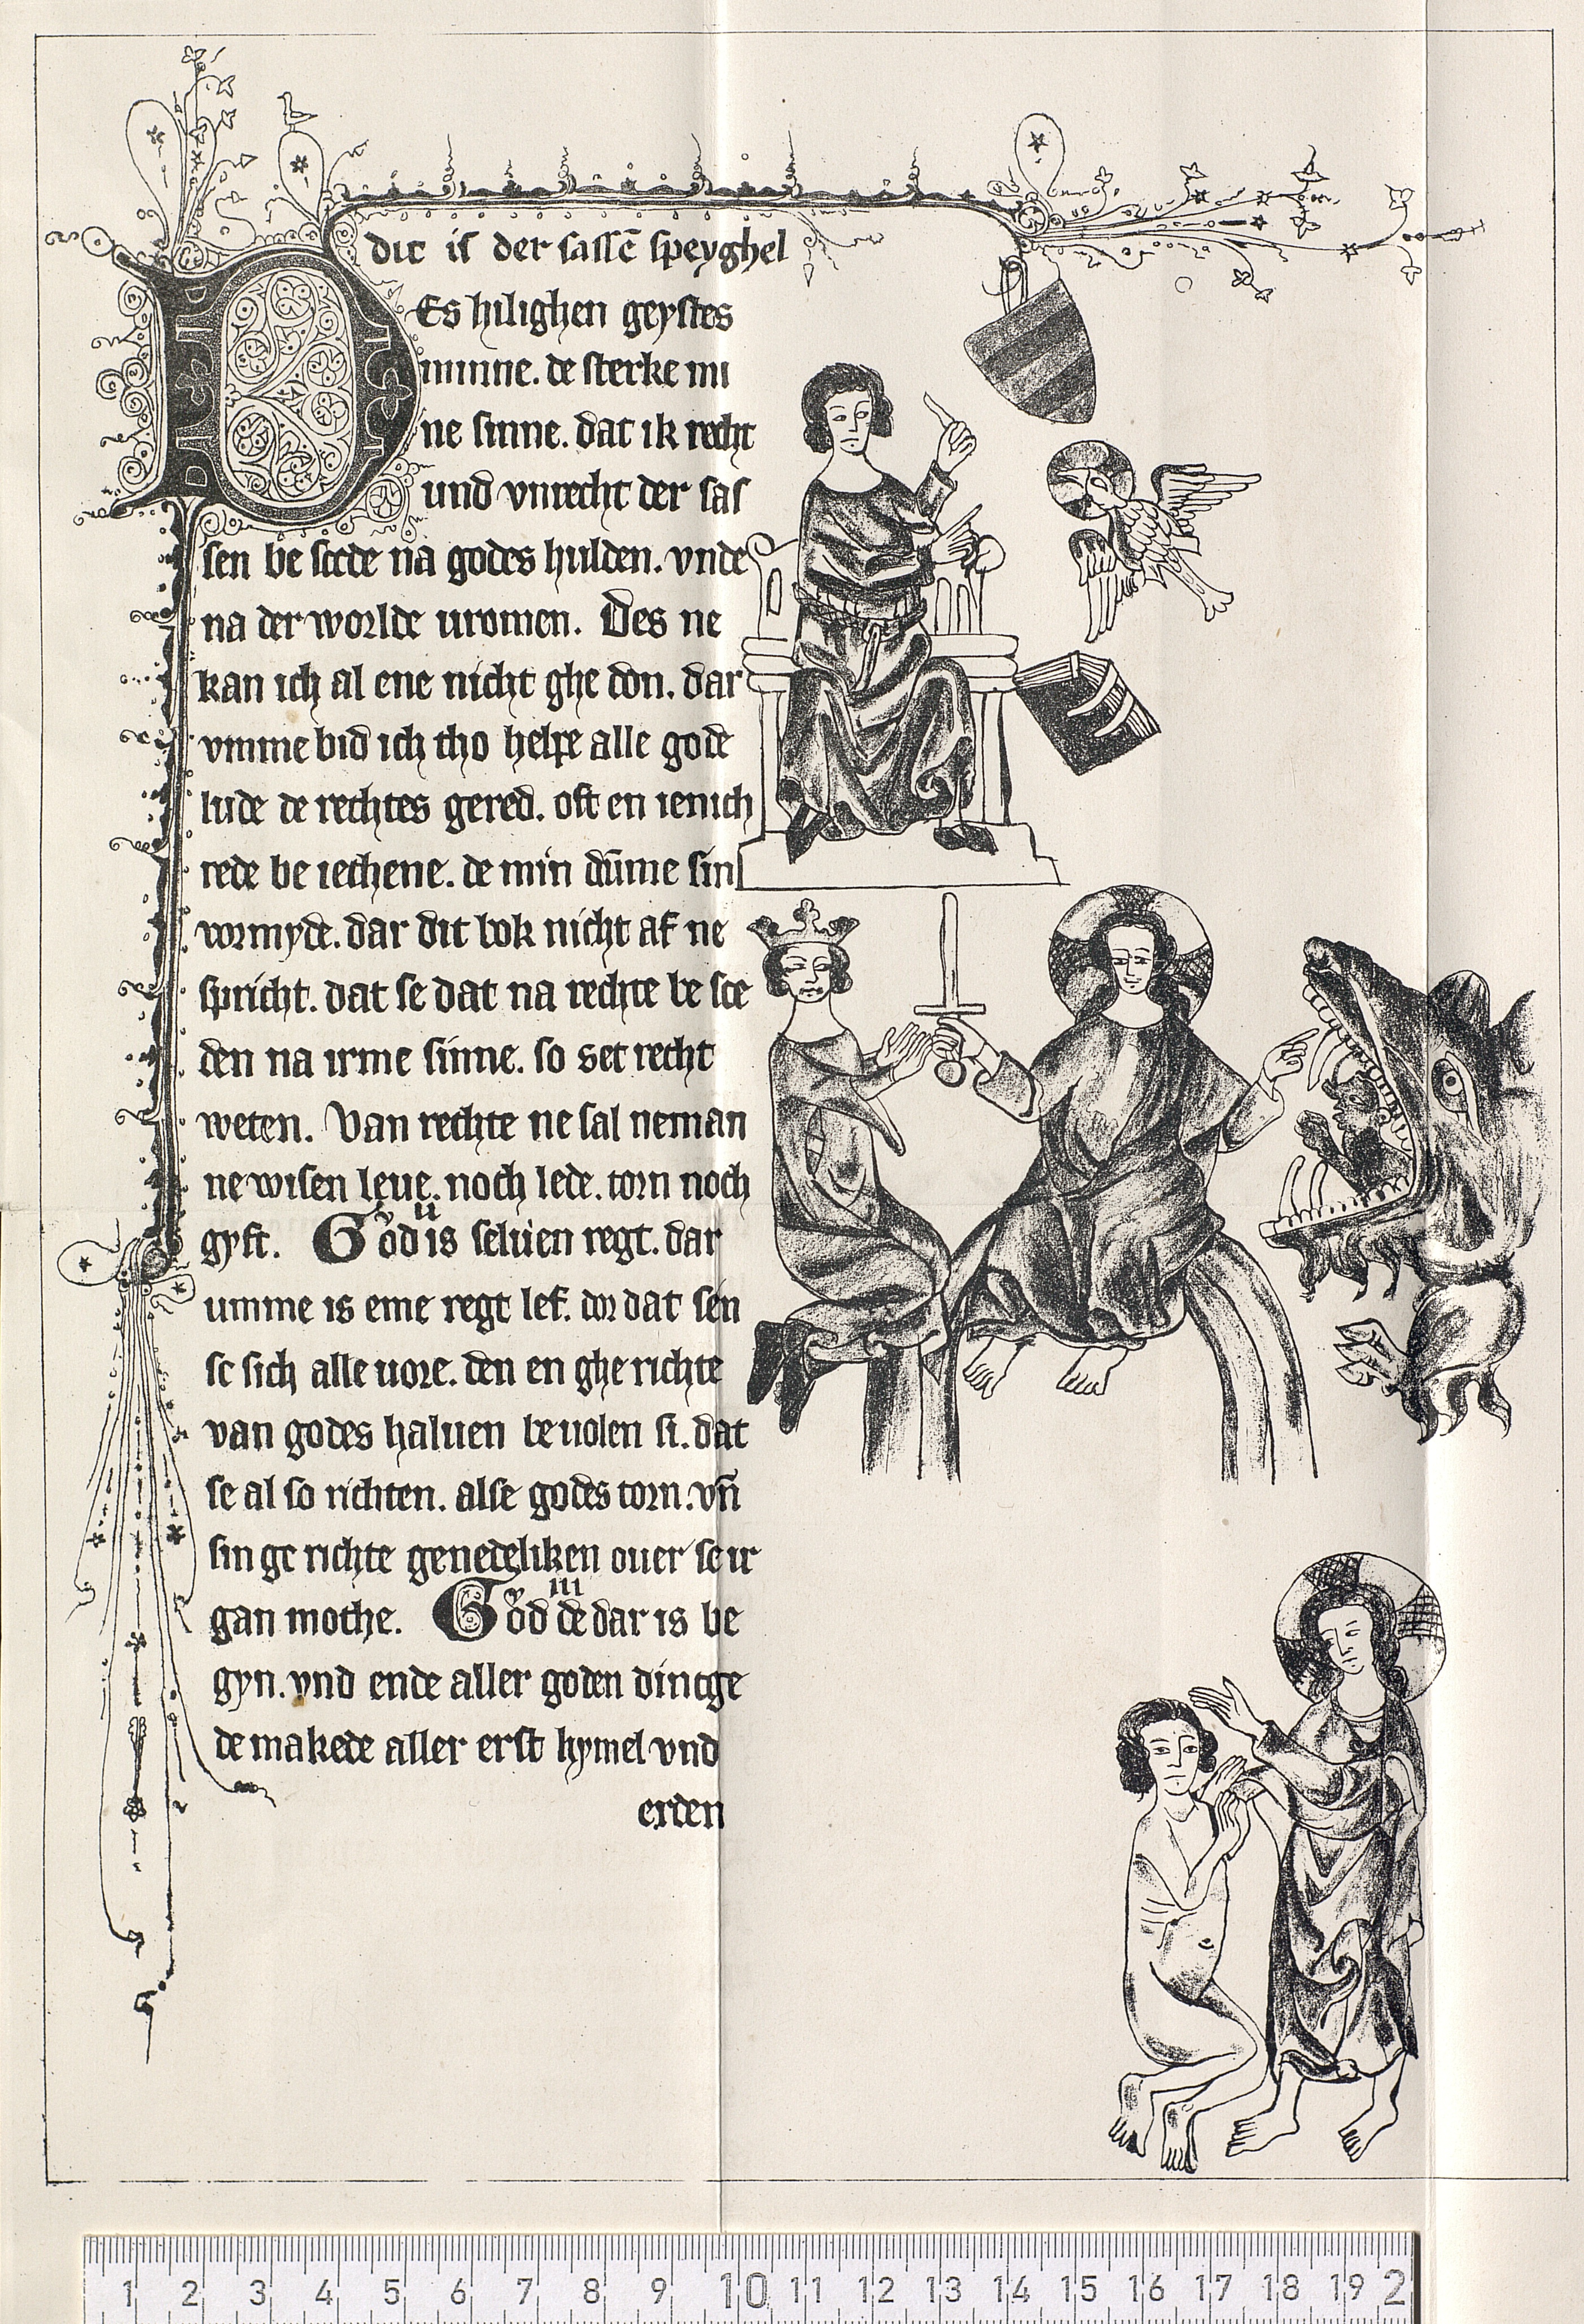 dit is der sassē speyghel
Des hilighen geystes
minne. de sterke mi
ne sinne. dat ik recht
und vnrecht der sas
sen be scede na godes hulden. vnde
na der worlde uromen. Des ne
kan ich al ene nicht ghe don. dar
vmme bid ich tho helpe alle gode
lude de rechtes gered. oft en ienich
rede be iechene. de min dūme sin
vormyde. dar dit bok nicht af ne
spricht. dat se dat na rechte be sce
den na irme sinne. so set recht
weten. Van rechte ne sal neman
ne wisen leue. noch lede. torn noch
gyft. God is seluen regt. dar
ii
umme is eme regt lef. dor dat sen
se sich alle uore. den en ghe richte
van godes haluen beuolen si. dat
se al so richten. alse godes torn. vn̄
sin ge richte genedeliken ouer se ir
gan mothe. God de dar is be
iii
gyn. vnd ende aller goden dintge
de makede aller erst hymel vnd
erden
1 2 3 4 5 6 7 8 9 10 11 12 13 14 15 16 17 18 19 2